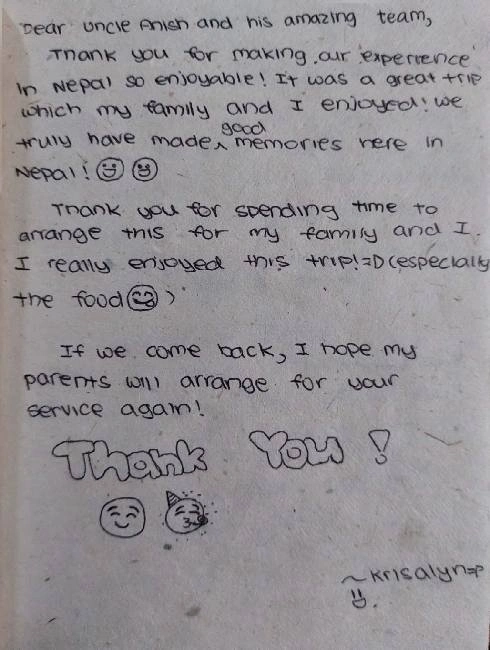 Dear uncle Anish and his amazing team,
Thank you for making our experience
in Nepal so enjoyable! It was a great trip
which my family and I enjoyed! we
truly have made ^ good memories here in
Nepal!
Thank you for spending time to
arrange this for my family and I.
I really enjoyed this trip!=D(especially
the food)
If we come back, I hope my
parents will arrange for your
service again!
Thank You!
~Krisalyn=P